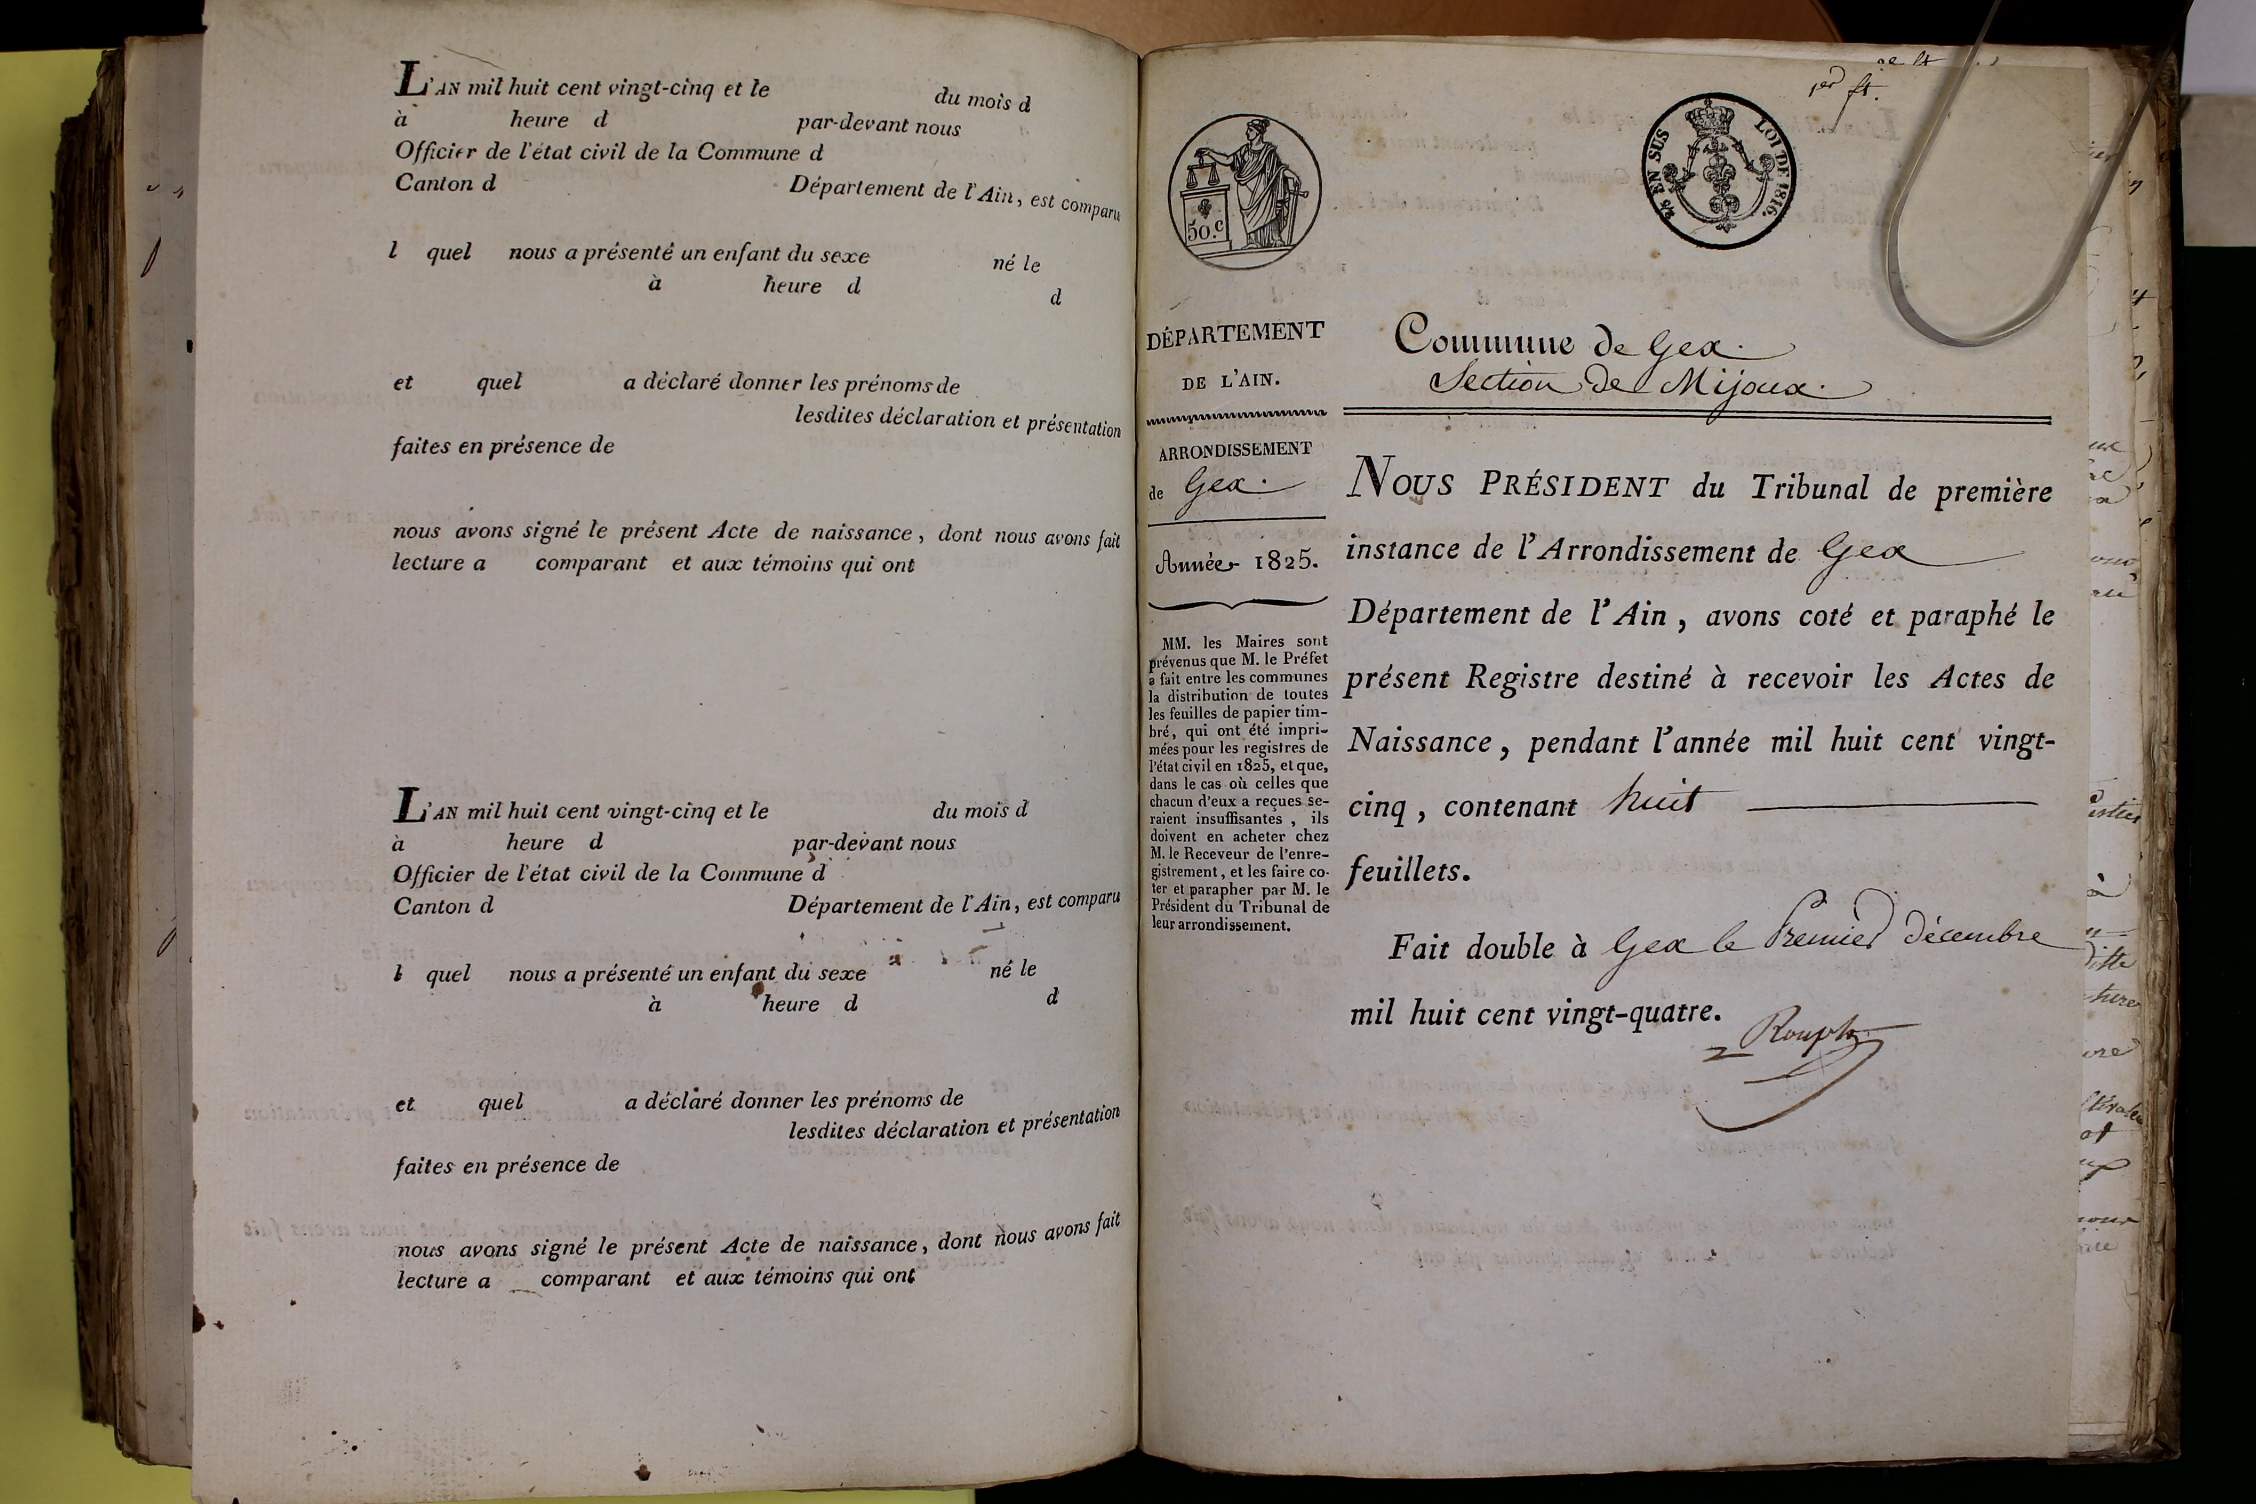 L'AN mil huit cent vingt-cinq et le du mois d
à heure d par-devant nous
Officier de l'état civil de la Commune d
Canton d Département de l'Ain, est comparu
l quel nous a présenté un enfant du sexe né le
à heure d d
et quel a déclaré donner les prénoms de
lesdites déclaration et présentation
faites en présence de
nous avons signé le présent Acte de naissance, dont nous avons fait
lecture a comparant et aux témoins qui ont
L'AN mil huit cent vingt-cinq et le du mois d
à heure d par-devant nous
Officier de l'état civil de la Commune d
Canton d Département de l'Ain, est comparu
l quel nous a présenté un enfant du sexe né le
à heure d d
et quel a déclaré donner les prénoms de
lesdites déclaration et présentation
faites en présence de
nous avons signé le présent Acte de naissance, dont nous avons fait
lecture a comparant et aux témoins qui ont
1er ft.
50.c
EN SUS LOI DE 1816.
DÉPARTEMENT
DE L'AIN.
ARRONDISSEMENT
de Gex.
Année 1825.
MM. les Maires sont
prévenus que M. le Préfet
a fait entre les communes
la distribution de toutes
les feuilles de papier tim-
bré, qui ont été impri-
mées pour les registres de
l'état civil en 1825, et que,
dans le cas où celles que
chacun d'eux a reçues se-
raient insuffisantes, ils
doivent en acheter chez
M. le Receveur de l'enre-
gistrement, et les faire co-
ter et parapher par M. le
Président du Tribunal de
leur arrondissement.
Commune de Gex.
Section de Mijoux.
NOUS PRÉSIDENT du Tribunal de première
instance de l'Arrondissement de Gex
Département de l'Ain, avons coté et paraphé le
présent Registre destiné à recevoir les Actes de
Naissance, pendant l'année mil huit cent vingt-
cinq, contenant huit
feuillets.
Fait double à Gex le Premier décembre
mil huit cent vingt-quatre.